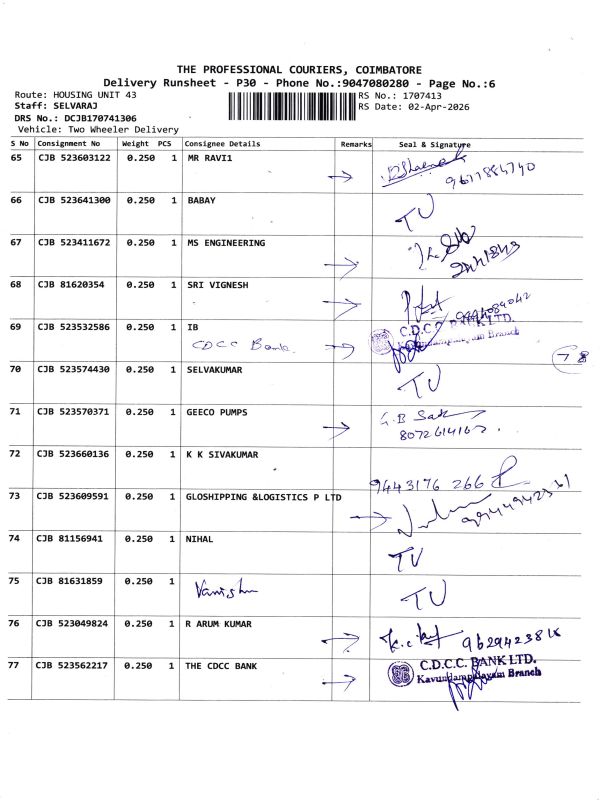 THE PROFESSIONAL COURIERS, COIMBATORE
Delivery Runsheet - P30 - Phone No.:9047080280 - Page No.:6
Route: HOUSING UNIT 43
RS No.: 1707413
Staff: SELVARAJ
RS Date: 02-Apr-2026
DRS No.: DCJB170741306
Vehicle: Two Wheeler Delivery
S No Consignment No Weight PCS Consignee Details Remarks Seal & Signature
65 CJB 523603122 0.250 1 MR RAVI1
66 CJB 523641300 0.250 1 BABAY TU
67 CJB 523411672 0.250 1 MS ENGINEERING
68 CJB 81620354 0.250 1 SRI VIGNESH
69 CJB 523532586 0.250 1 IB C.D.C.C BANK LTD.
CDCC Bank. Kavundampalayam Branch
78
70 CJB 523574430 0.250 1 SELVAKUMAR TU
71 CJB 523570371 0.250 1 GEECO PUMPS
72 CJB 523660136 0.250 1 K K SIVAKUMAR 9443176 266
73 CJB 523609591 0.250 1 GLOSHIPPING &LOGISTICS P LTD
74 CJB 81156941 0.250 1 NIHAL TU
75 CJB 81631859 0.250 1 TU
76 CJB 523049824 0.250 1 R ARUM KUMAR
77 CJB 523562217 0.250 1 THE CDCC BANK C.D.C.C. BANK LTD.
Kavundampalayam Branch